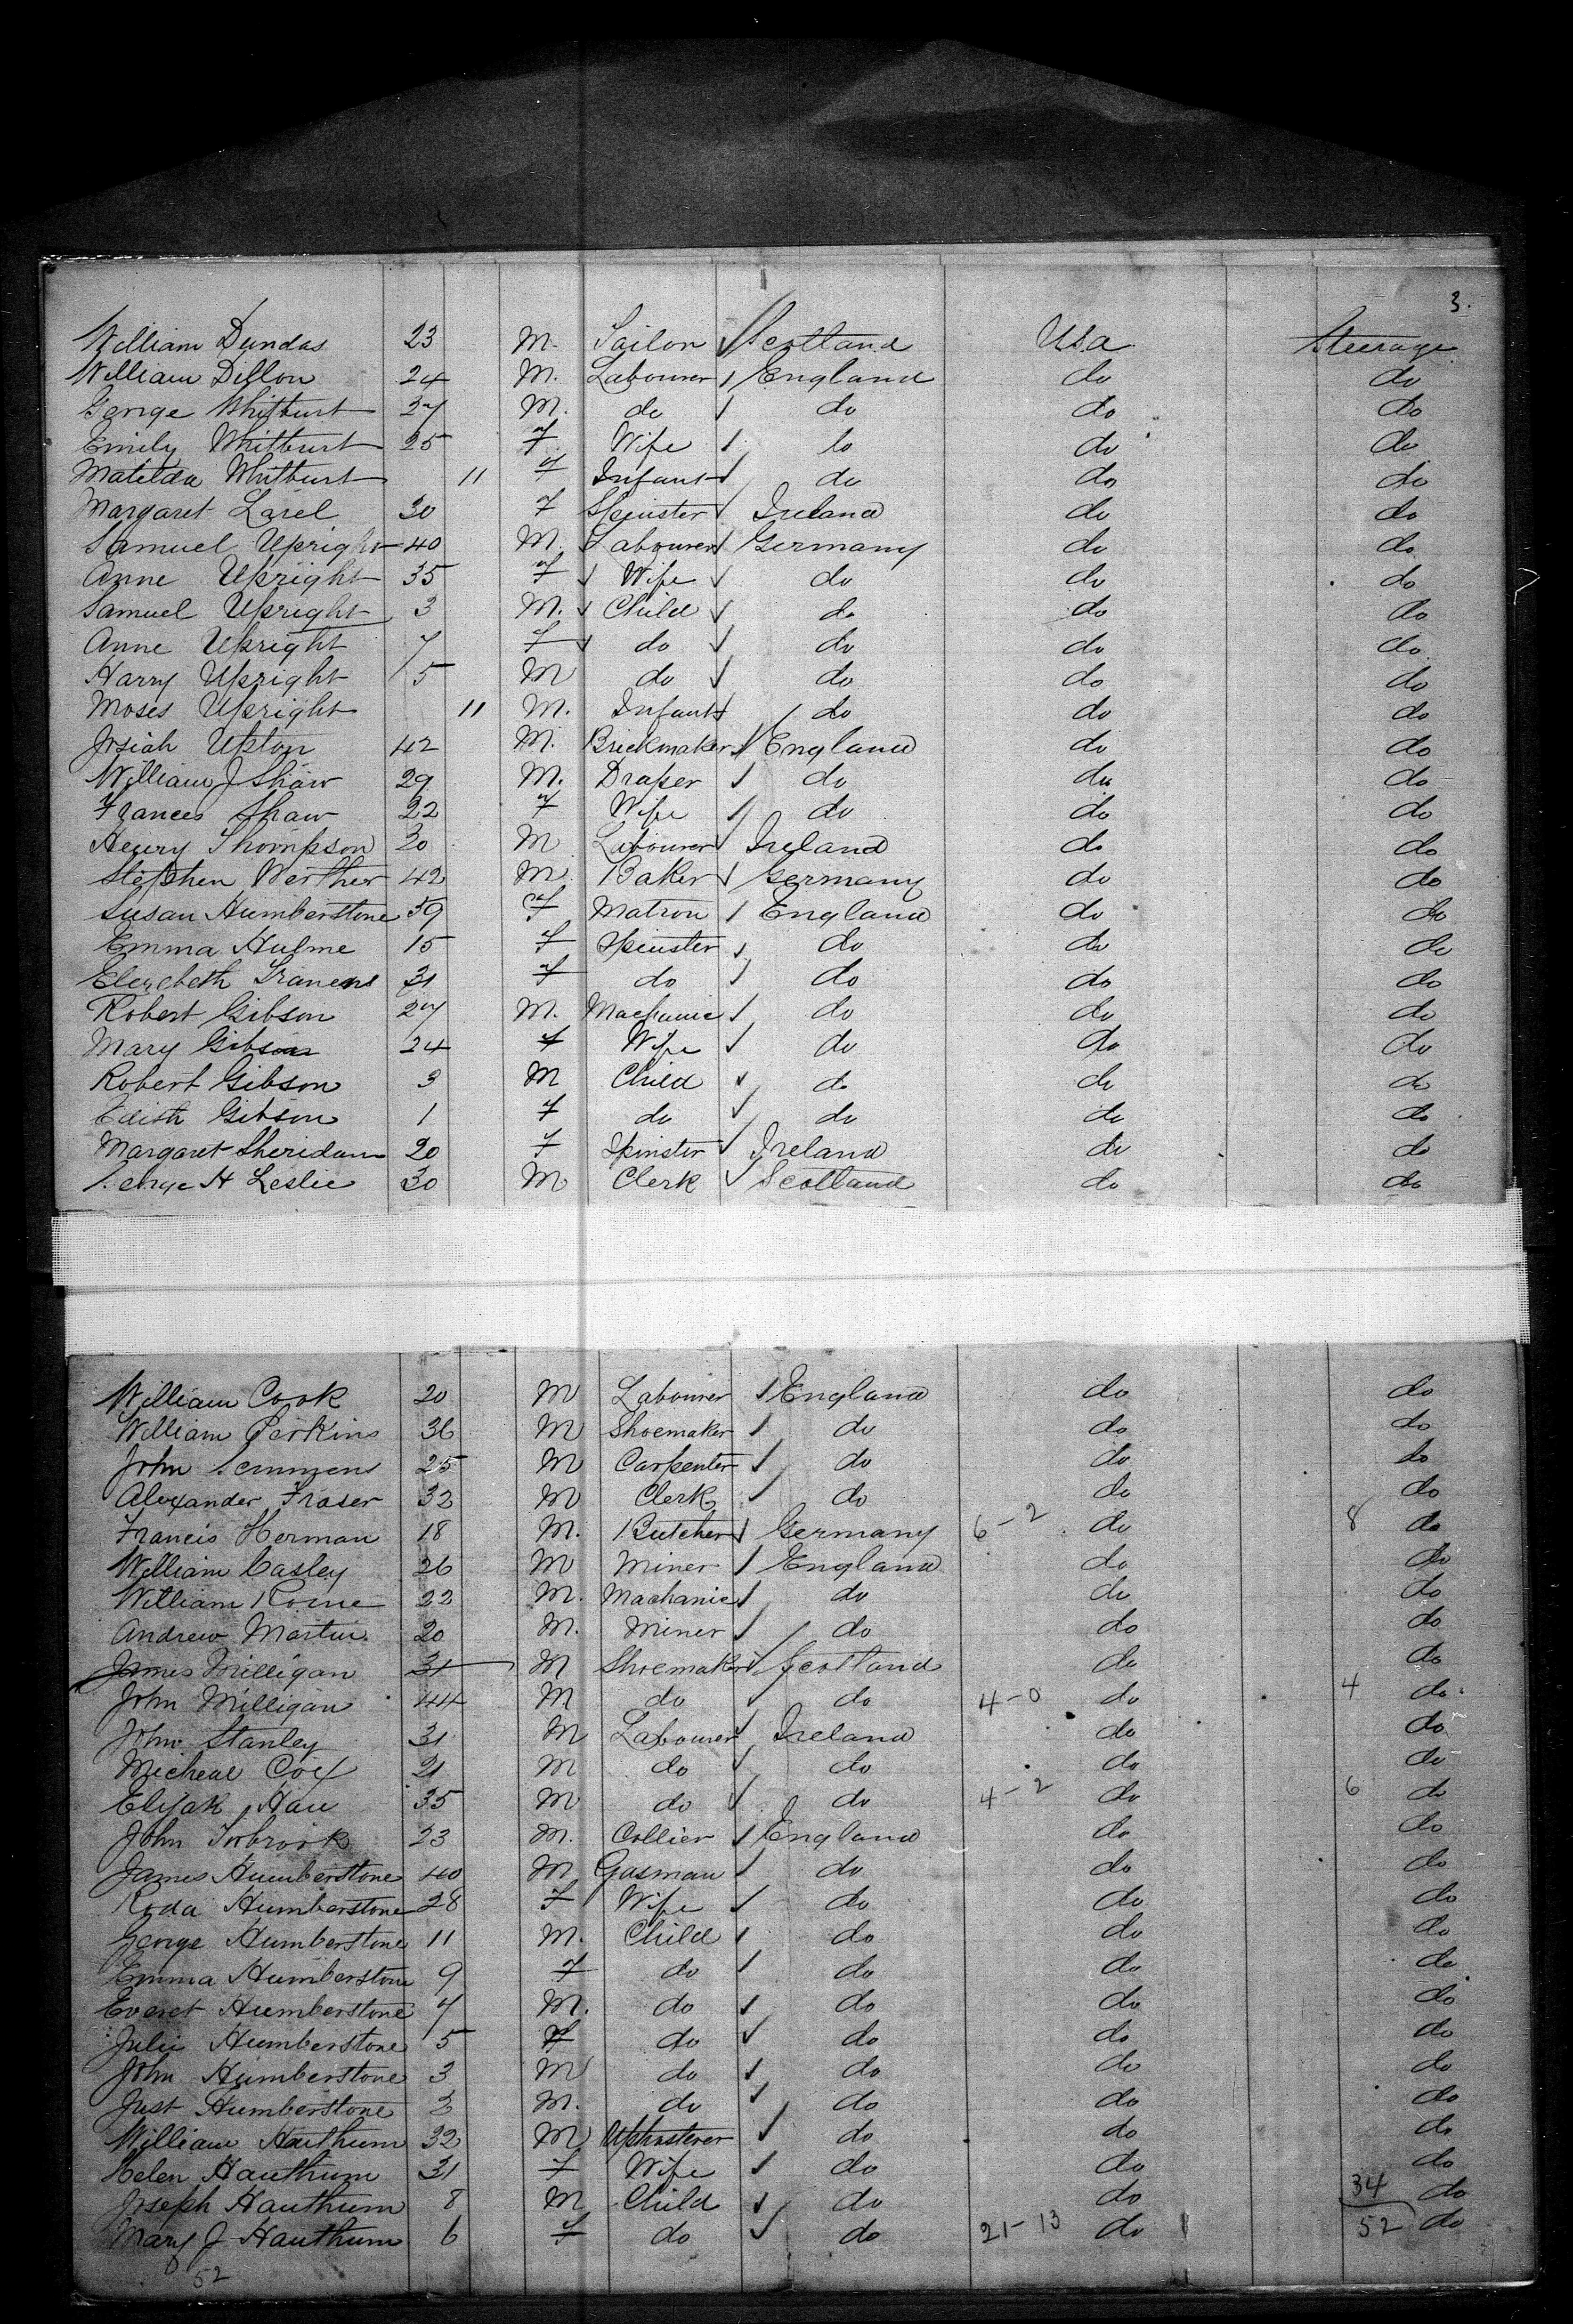 3.
William Dundas 23 M. Sailor Scotland Usa Steerage
William Dillon 24 M. Labourer England do do
George Whitburt 27 M. do do do do
Emily Whitburt 25 F. Wife do do do
Matilda Whitburt 11 F Infant do do do
Margaret Larel 30 F Spinster Ireland do do
Samuel Upright 40 M. Labourer Germany do do
Anne Upright 35 F Wife do do do
Samuel Upright 3 M. Child do do do
Anne Upright 7 F do do do do
Harry Upright 5 M do do do do
Moses Upright 11 M. Infant do do do
Josiah Upton 42 M. Brickmaker England do do
William J Shaw 29 M. Draper do do do
Frances Shaw 22 F Wife do do do
Henry Thompson 30 M Labourer Ireland do do
Stephen Werther 42 M. Baker Germany do do
Susan Humberstone 59 F Matron England do do
Emma Hulme 15 F Spinster do do do
Elezebeth 31 F do do do do
Robert Gibson 27 M. Machanic do do do
Mary Gibson 24 F Wife do do do
Robert Gibson 3 M Child do do do
Edith Gibson 1 F do do do do
Margaret Sheridan 20 F Spinster Ireland do do
George H Leslie 30 M Clerk Scotland do do
William Cook 20 M Labourer England do do
William Perkins 36 M Shoemaker do do do
John Semmens 25 M Carpenter do do do
Alexander Fraser 32 M Clerk do do do
Francis Herman 18 M. Butcher Germany 6-2 do 8 do
William Casley 26 M Miner England do do
William Rowe 22 M. Machanic do do do
Andrew Martin 20 M. Miner do do do
James Milligan 31 M Shoemaker Scotland do do
John Milligan 44 M do do 4-0 do 4 do
John Stanley 31 M Labourer Ireland do do
Micheal Cox 21 M do do do do
Elijah 35 M do do 4-2 do 6 do
John Forbrook 23 M. Collier England do do
James Humberstone 40 M Gasman do do do
Roda Humberstone 28 F Wife do do do
George Humberstone 11 M. Child do do do
Emma Humberstone 9 F do do do do
Everet Humberstone 7 M. do do do do
Julie Humberstone 5 F do do do do
John Humberstone 3 M do do do do
Just Humberstone 2 M. do do do do
William Hauthum 32 M Upholsterer do do do
Helen Hauthum 31 F Wife do do do
Joseph Hauthum 8 M Child do do 34 do
Mary J Hauthum 6 F do do 21-13 do 52 do
52